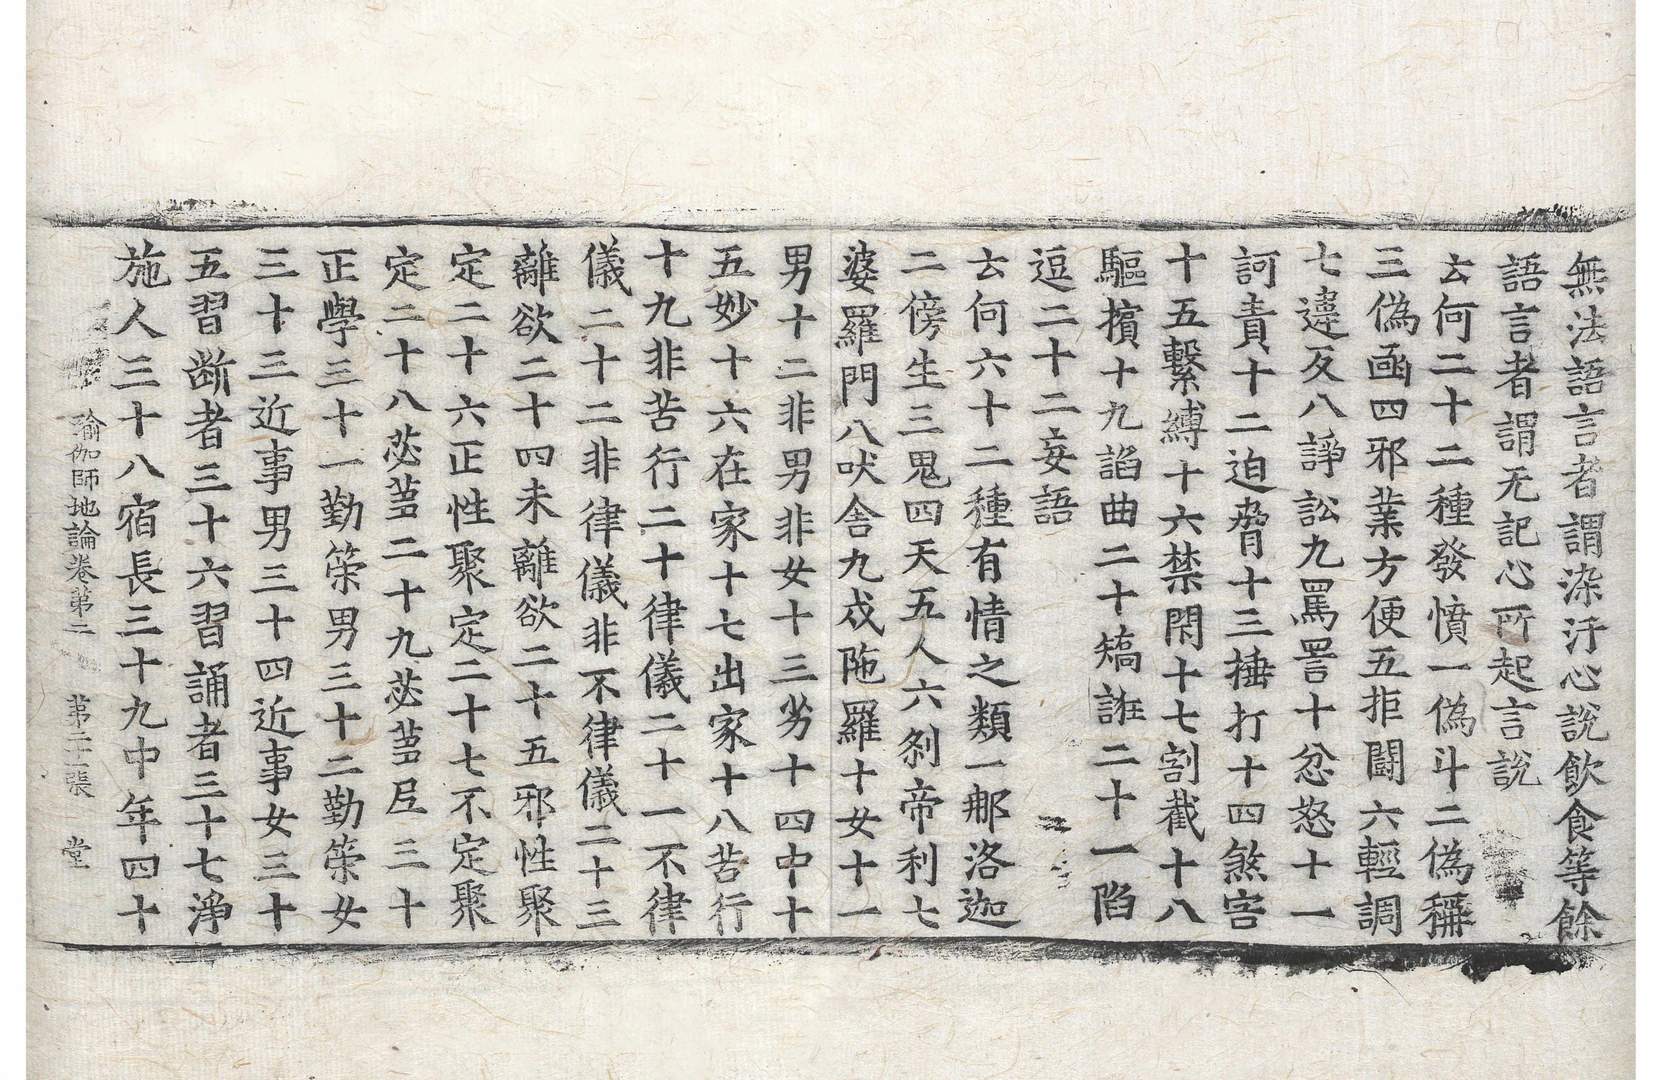 無法語言者謂染汙心說飲食等餘
語言者謂无記心所起言說
云何二十二種發憤一偽斗二偽稱
三偽函四邪業方便五拒鬪六輕調
七違反八諍訟九罵詈十忿怒十一
訶責十二迫脅十三捶打十四煞害
十五繫縛十六禁閇十七割截十八
驅擯十九諂曲二十矯誑二十一陷
逗二十二妄語
云何六十二種有情之類一那洛迦
二傍生三鬼四天五人六剎帝利七
婆羅門八吠舍九戍陁羅十女十一
男十二非男非女十三劣十四中十
五妙十六在家十七出家十八苦行
十九非苦行二十律儀二十一不律
儀二十二非律儀非不律儀二十三
離欲二十四未離欲二十五邪性聚
定二十六正性聚定二十七不定聚
定二十八苾蒭二十九苾蒭尼三十
正學三十一勤策男三十二勤策女
三十三近事男三十四近事女三十
五習断者三十六習誦者三十七淨
施人三十八宿長三十九中年四十
瑜伽師地論卷第二 第二十二張 堂